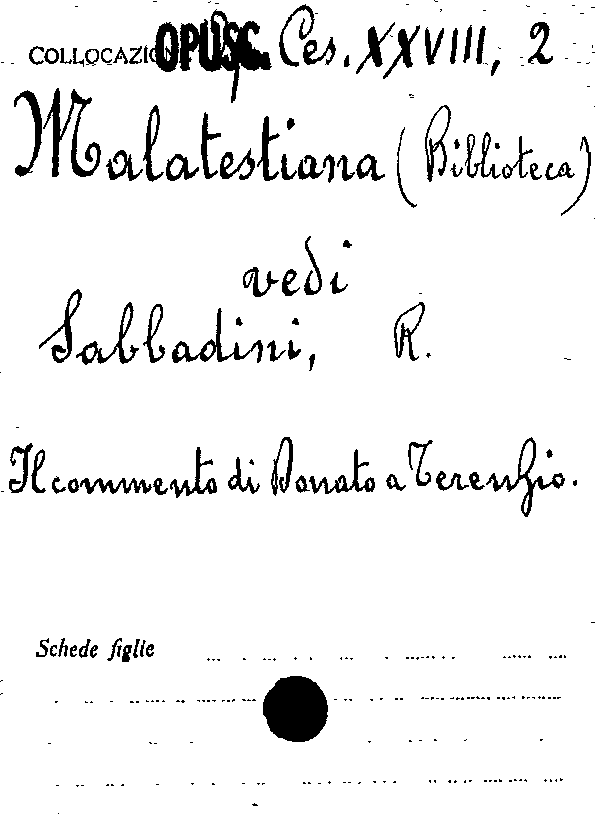 COLLOCAZIONE OPUSC. Ces. XXVIII, 2
Malatestiana (Biblioteca)
vedi
Sabbadini, R.
Il commento di Donato a Terenzio.
Schede figlie